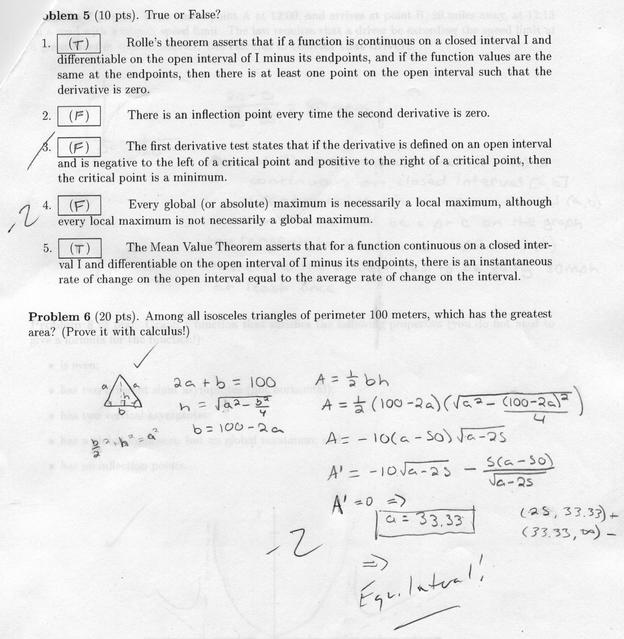 oblem 5 (10 pts). True or False?
1. (T) Rolle's theorem asserts that if a function is continuous on a closed interval I and
differentiable on the open interval of I minus its endpoints, and if the function values are the
same at the endpoints, then there is at least one point on the open interval such that the
derivative is zero.
2. (F) There is an inflection point every time the second derivative is zero.
3. (F) The first derivative test states that if the derivative is defined on an open interval
and is negative to the left of a critical point and positive to the right of a critical point, then
the critical point is a minimum.
-2
4. (F) Every global (or absolute) maximum is necessarily a local maximum, although
every local maximum is not necessarily a global maximum.
5. (T) The Mean Value Theorem asserts that for a function continuous on a closed inter-
val I and differentiable on the open interval of I minus its endpoints, there is an instantaneous
rate of change on the open interval equal to the average rate of change on the interval.
Problem 6 (20 pts). Among all isosceles triangles of perimeter 100 meters, which has the greatest
area? (Prove it with calculus!)
a a h b
2a + b = 100
h = √(a² - b²/4)
b = 100 - 2a
b/2² + h² = a²
A = ½ bh
A = ½ (100-2a)(√(a² - (100-2a)²/4))
A = -10(a-50)√a-25
A' = -10√a-25 - 5(a-50)/√a-25
A' = 0 =>
a = 33.33
(25, 33.33) +
(33.33, ∞) -
-2
=>
Equilateral!